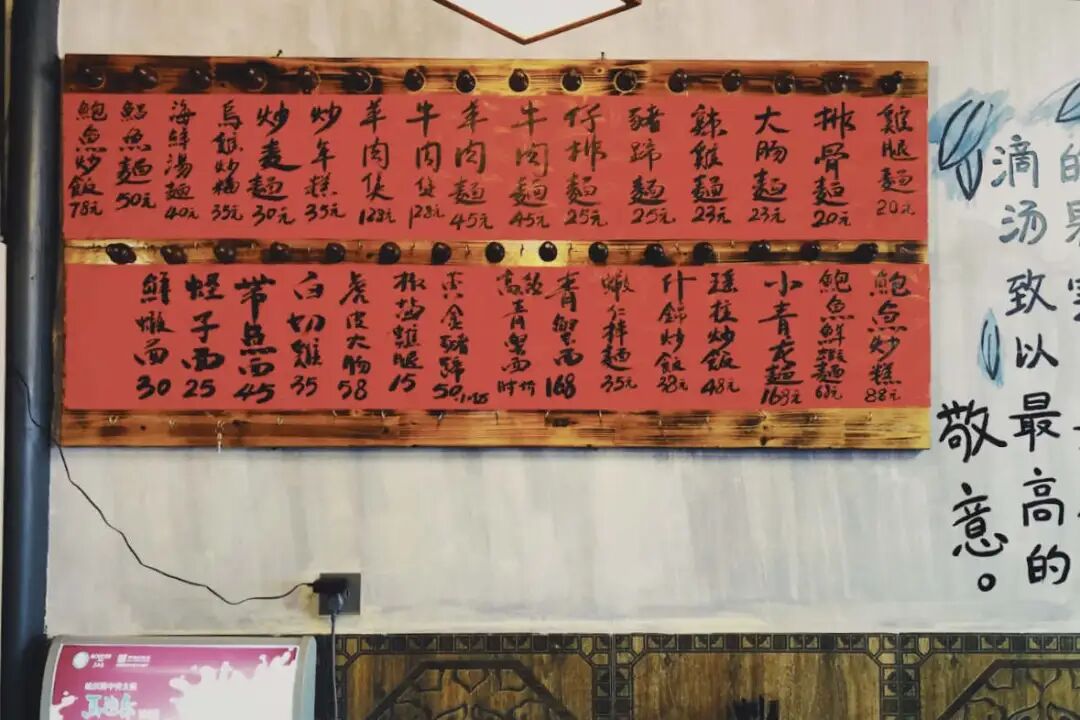 雞腿麵 20元
排骨麵 20元
大肠麵 23元
辣雞麵 23元
豬蹄麵 25元
仔排麵 25元
牛肉麵 45元
羊肉麵 45元
牛肉煲 128元
羊肉煲 128元
炒年糕 35元
炒麦麵 30元
烏雞炒 35元
海鲜湯麵 40元
鮑魚麵 50元
鮑魚炒飯 78元
鮑魚炒糕 88元
鮑魚鮮蝦麵 68元
小青龙麵 168元
瑶柱炒飯 48元
什錦炒飯 38元
蝦仁拌麵 35元
青蟹面 168
青蟹面 时价
黄金豬蹄 50
雞腿 15
虎皮大肠 58
白切雞 35
带魚面 45
蛏子面 25
鮮墩面 30
的果
滴汤致以最高的
敬意。